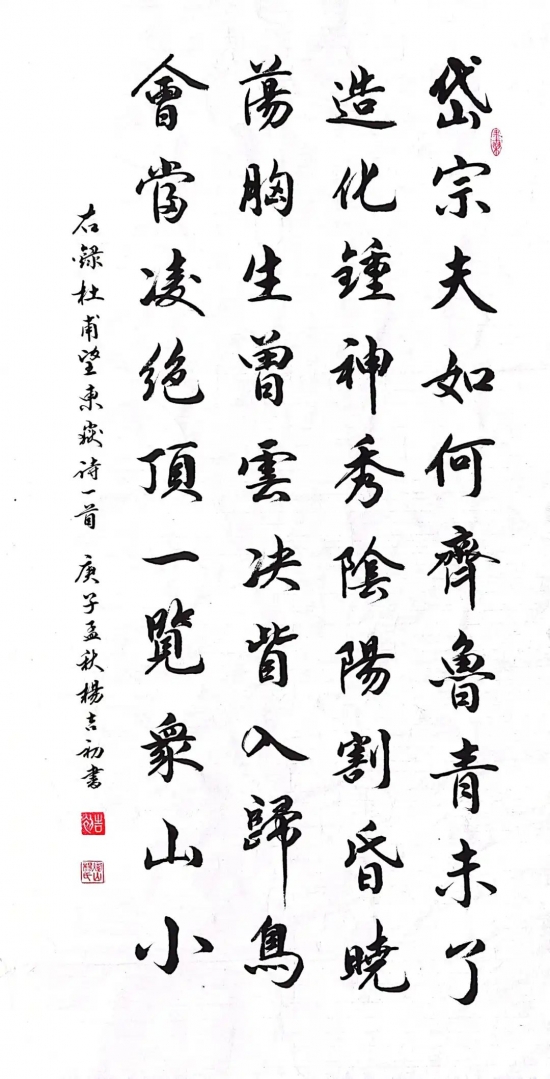 岱宗夫如何齊魯青未了
造化鍾神秀陰陽割昏曉
蕩胸生曾雲决眥入歸鳥
會當凌絕頂一覽衆山小
右錄杜甫望東嶽诗一首 庚子孟秋楊吉初書
吉初